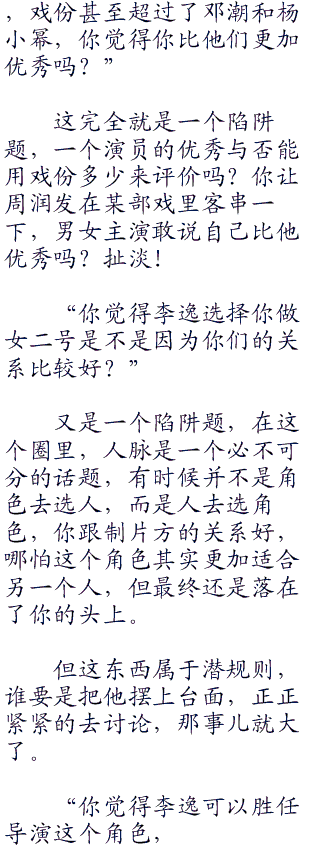 ，戏份甚至超过了邓潮和杨
小幂，你觉得你比他们更加
优秀吗？”
这完全就是一个陷阱
题，一个演员的优秀与否能
用戏份多少来评价吗？你让
周润发在某部戏里客串一
下，男女主演敢说自己比他
优秀吗？扯淡！
“你觉得李逸选择你做
女二号是不是因为你们的关
系比较好？”
又是一个陷阱题，在这
个圈里，人脉是一个必不可
分的话题，有时候并不是角
色去选人，而是人去选角
色，你跟制片方的关系好，
哪怕这个角色其实更加适合
另一个人，但最终还是落在
了你的头上。
但这东西属于潜规则，
谁要是把他摆上台面，正正
紧紧的去讨论，那事儿就大
了。
“你觉得李逸可以胜任
导演这个角色，